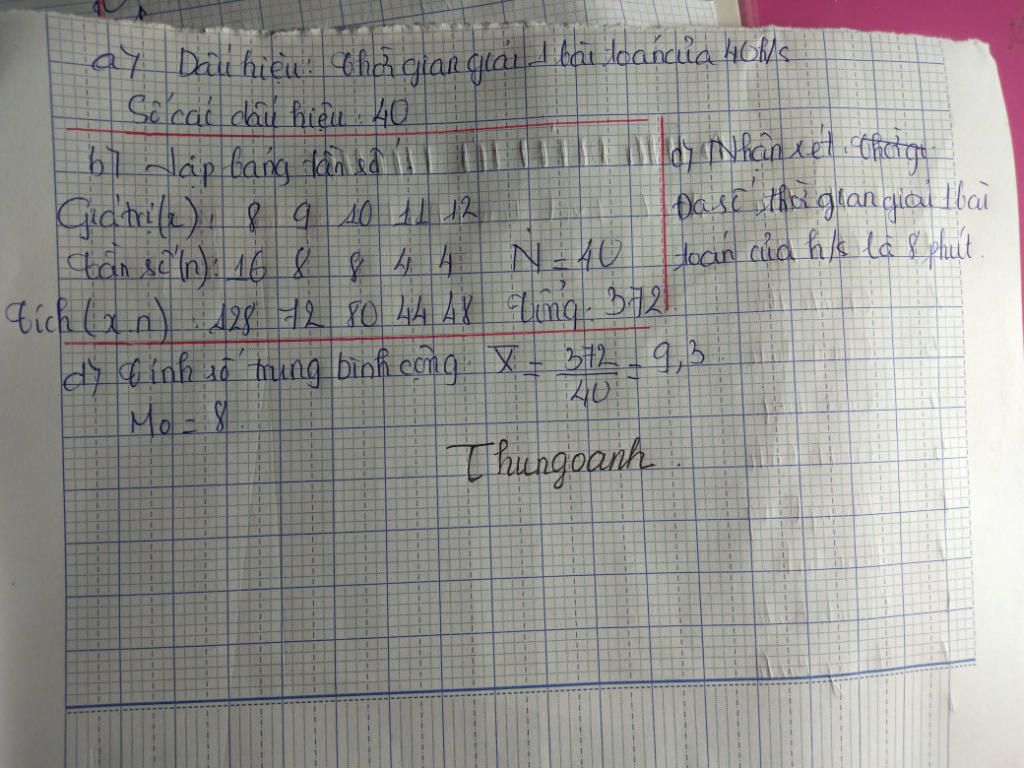 a) Dấu hiệu: thời gian giải 1 bài toán của 40 h/s
Số các dấu hiệu: 40
b) Lập bảng tần số
Giá trị (x): 8 9 10 11 12
tần số (n): 16 8 8 4 4 N = 40
tích (x.n): 128 72 80 44 48 tổng: 372
d) Nhận xét: thời g
Đa số thời gian giải 1 bài
toán của h/s là 8 phút.
d) tính số trung bình cộng: X̅ = 372/40 = 9,3
M₀ = 8.
Thungoanh.